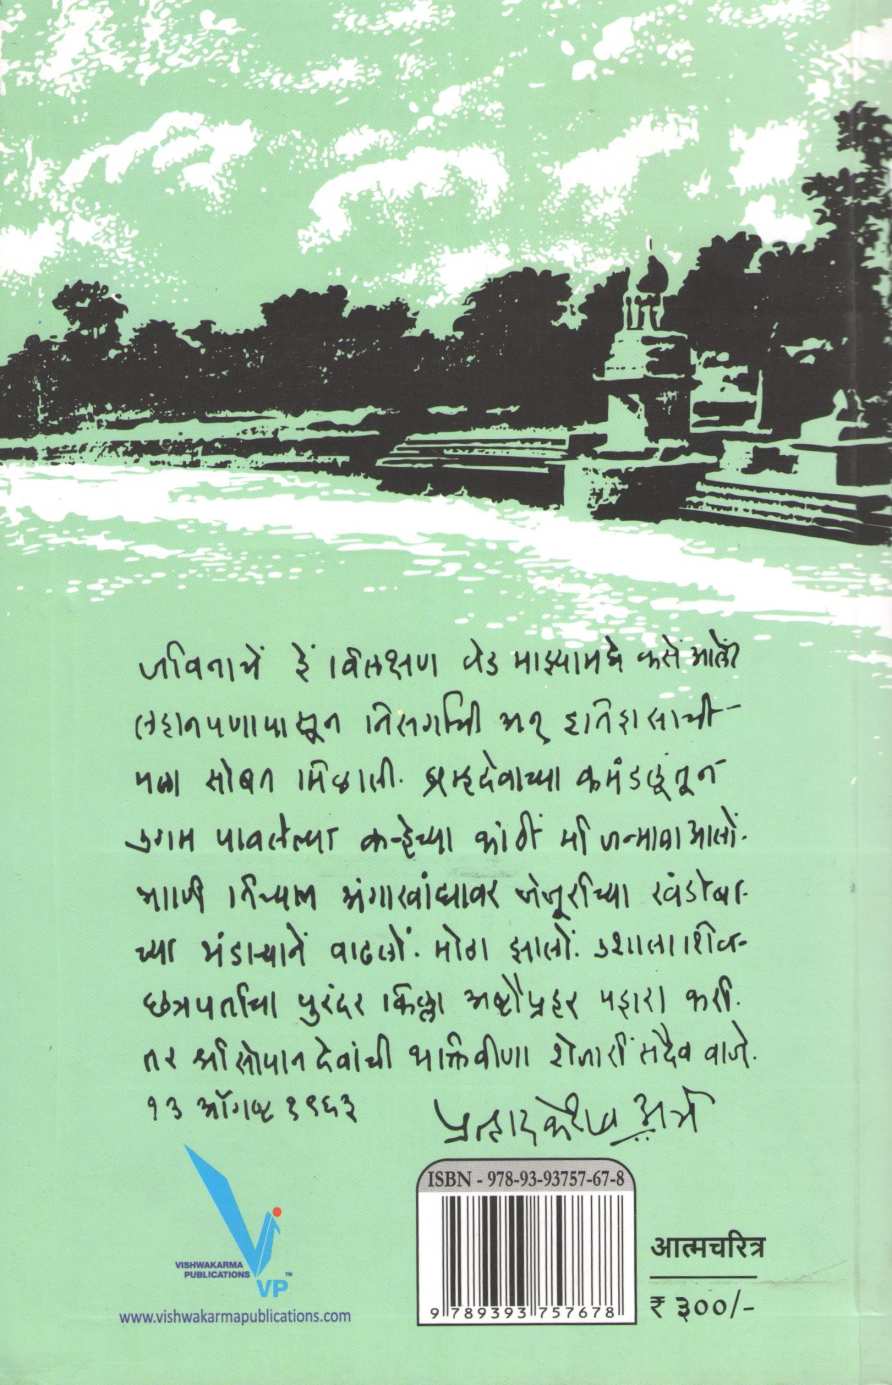 जीविताचें हें विलक्षण वेड माझ्यामध्ये कसें आलें
लहानपणापासून निसर्गाची अन् इतिहासाची
मला सोबत मिळाली. ब्रम्हदेवाच्या कमंडलूंतून
उगम पावलेल्या कऱ्हेच्या कांठीं मी जन्माला आलों.
आणि तिच्याच अंगाखांद्यावर जेजूरीच्या खंडोबा-
च्या भंडाऱ्यानें वाढलों. मोठा झालों. उशाला शिव-
छत्रपतींचा पुरंदर किल्ला अष्टौप्रहर पहारा करी.
तर श्री सोपान देवांची भक्तिवीणा शेजारीं सदैव वाजे.
१३ ऑगस्ट १९६३ प्रल्हाद केशव अत्रे
ISBN - 978-93-93757-67-8
9 789393 757678
VISHWAKARMA
PUBLICATIONS
VP™
www.vishwakarmapublications.com
आत्मचरित्र
₹ ३००/-